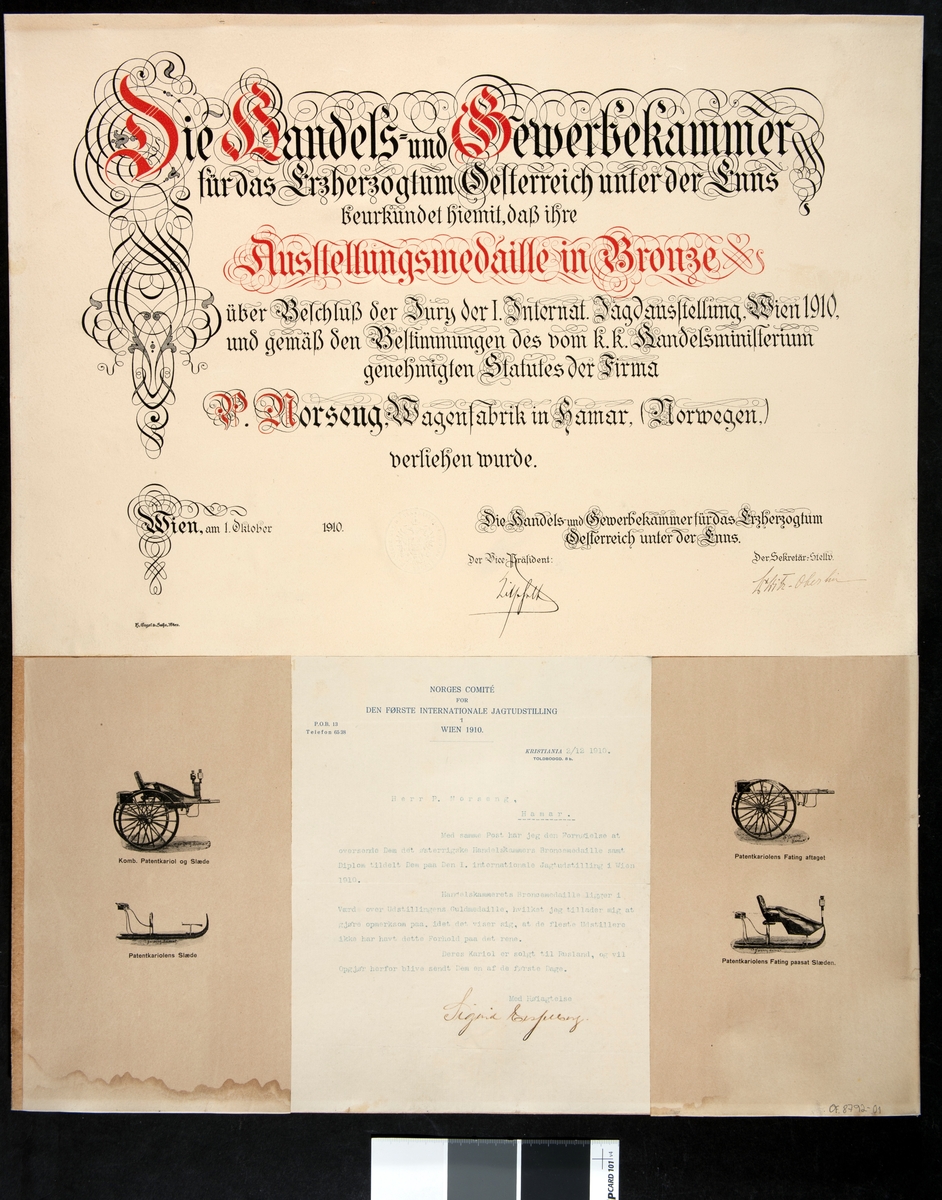 Die Handels- und Gewerbekammer
für das Erzherzogtum Oesterreich unter der Enns
beurkundet hiemit, daß ihre
Ausstellungsmedaille in Bronze
über Beschluß der Jury der I. Internat. Jagdausstellung, Wien 1910,
und gemäß den Bestimmungen des vom k. k. Handelsministerium
genehmigten Statutes der Firma
P. Norseng, Wagenfabrik in Hamar, (Norwegen.)
verliehen wurde.
Wien, am 1. Oktober 1910.
Die Handels und Gewerbekammer für das Erzherzogtum
Oesterreich unter der Enns.
Der Vice-Präsident:
Der Sekretär-Stellv.
Komb. Patentkariol og Slæde
Patentkariolens Slæde
NORGES COMITÉ
FOR
DEN FØRSTE INTERNATIONALE JAGTUDSTILLING
I
WIEN 1910.
P.O.B. 13
Telefon
KRISTIANIA 2/12 1910.
Herr P. Norseng,
Hamar.
Med samme Post har jeg den Fornøielse at
oversende Dem det østerrigske Handelskammers Bronsemedaille samt
Diplom tildelt Dem paa Den 1. internationale Jagtudstilling i Wien
1910.
Handelskammerets Bronsemedaille ligger i
Værdi over Udstillingens Guldmedaille, hvilket jeg tillader mig at
gjøre opmærksom paa, idet det viser sig, at de fleste Udstillere
ikke har havt dette Forhold paa det rene.
Deres Kariol er solgt til Rusland, og vil
Opgjør herfor blive sendt Dem en af de første Dage.
Med Høiagtelse
Sigrid
Patentkariolens Fating aftaget
Patentkariolens Fating paasat Slæden.
OF. 8792-01
PCARD 101 v4